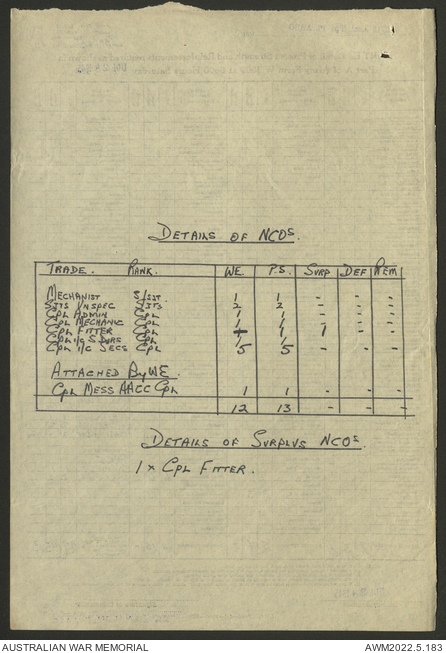 DETAILS OF NCOs.
TRADE. RANK. WE. P.S. SURP DEF REM
MECHANIST S/SGT. 1 1 - - -
SGTS UNSPEC SGTS 2 2 - - -
CPL ADMIN CPL 1 1 - - -
CPL MECHANIC CPL 1 1 - - -
CPL FITTER CPL - 1 1 - -
CPL I/C S DVRS CPL 1 1 - - -
CPL I/C SECS CPL 5 5 - - -
ATTACHED By WE.
CPL MESS AACC CPL 1 1 - - -
12 13 - - -
DETAILS OF SURPLUS NCOs.
1 x CPL FITTER.
AUSTRALIAN WAR MEMORIAL
AWM2022.5.183